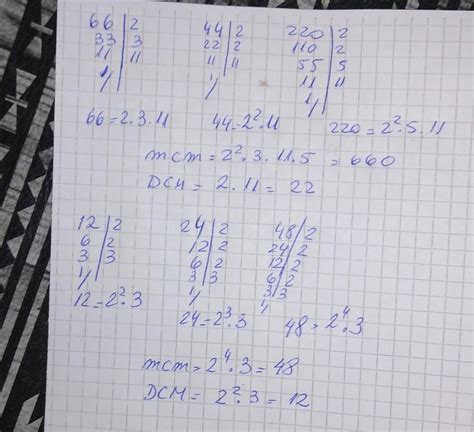 66 | 2 44 | 2 220 | 2
33 | 3 22 | 2 110 | 2
11 | 11 11 | 11 55 | 5
1/ | 1/ 11 | 11
1/
66=2·3·11 44=2²·11 220=2²·5·11
mcm=2²·3·11·5 = 660
DCM = 2·11 = 22
12 | 2 24 | 2 48 | 2
6 | 2 12 | 2 24 | 2
3 | 3 6 | 2 12 | 2
1/ 3 | 3 6 | 2
1/ 3 | 3
1/
12=2²·3 24=2³·3 48=2⁴·3
mcm=2⁴·3=48
DCM=2²·3=12